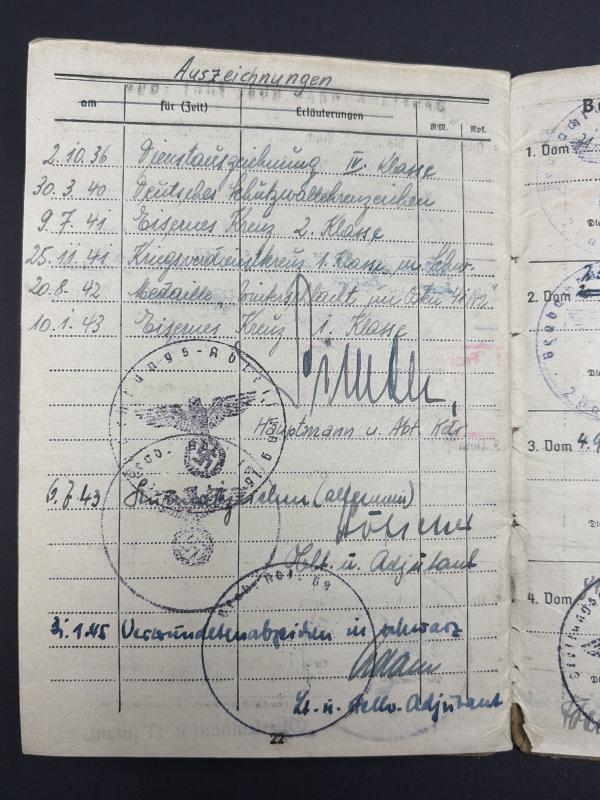 Auszeichnungen
am für (Zeit) Erläuterungen RM. Rpf.
2.10.36 Dienstauszeichnung IV. Klasse
30.3.40 Deutsches Schutzwallehrenzeichen
9.7.41 Eisernes Kreuz 2. Klasse
25.11.41 Kriegsverdienstkreuz 1. Klasse m. Schw.
20.8.42 Medaille „Winterschlacht im Osten 41/42"
10.1.43 Eisernes Kreuz 1. Klasse
Hauptmann u. Abt. Kdr.
6.7.43 (allgemein)
Oblt. u. Adjutant
1.45 Verwundetenabzeichen in schwarz
Lt. u. stellv. Adjutant
22
1. Vom
2. Vom
3. Vom 4.9
4. Vom